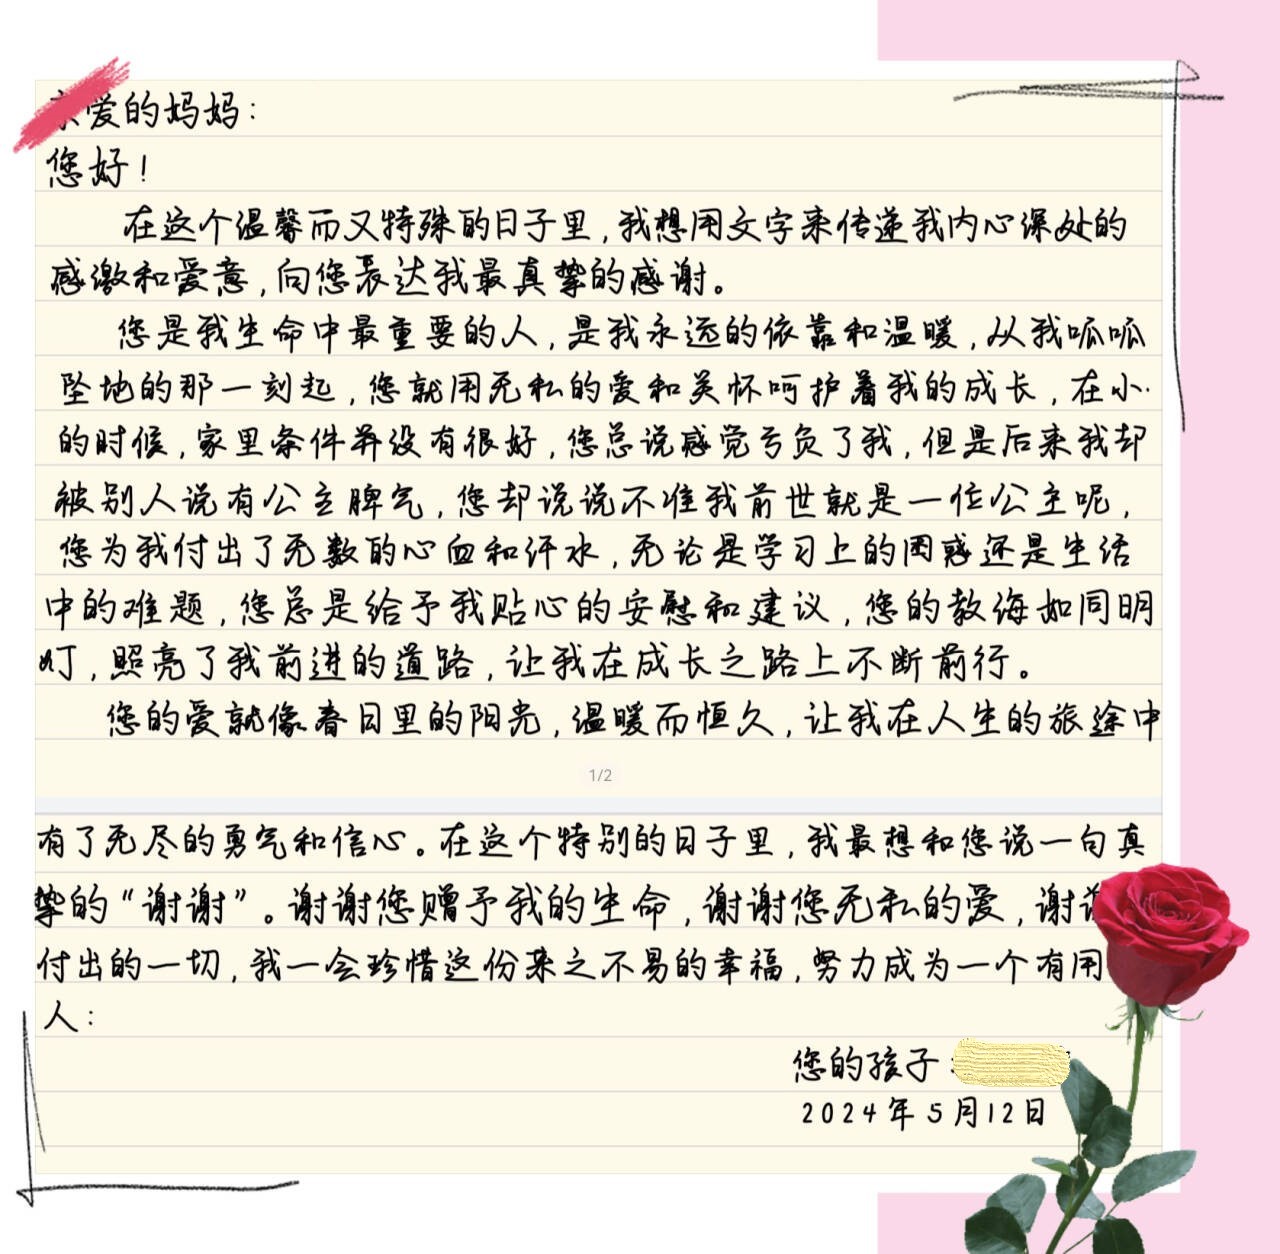 亲爱的妈妈：
您好！
在这个温馨而又特殊的日子里，我想用文字来传递我内心深处的
感激和爱意，向您表达我最真挚的感谢。
您是我生命中最重要的人，是我永远的依靠和温暖，从我呱呱
坠地的那一刻起，您就用无私的爱和关怀呵护着我的成长，在小
的时候，家里条件并没有很好，您总说感觉亏负了我，但是后来我却
被别人说有公主脾气，您却说说不准我前世就是一位公主呢，
您为我付出了无数的心血和汗水，无论是学习上的困惑还是生活
中的难题，您总是给予我贴心的安慰和建议，您的教诲如同明
灯，照亮了我前进的道路，让我在成长之路上不断前行。
您的爱就像春日里的阳光，温暖而恒久，让我在人生的旅途中
1/2
有了无尽的勇气和信心。在这个特别的日子里，我最想和您说一句真
挚的“谢谢”。谢谢您赠予我的生命，谢谢您无私的爱，谢
付出的一切，我一会珍惜这份来之不易的幸福，努力成为一个有用
人：
您的孩子：
2024年5月12日